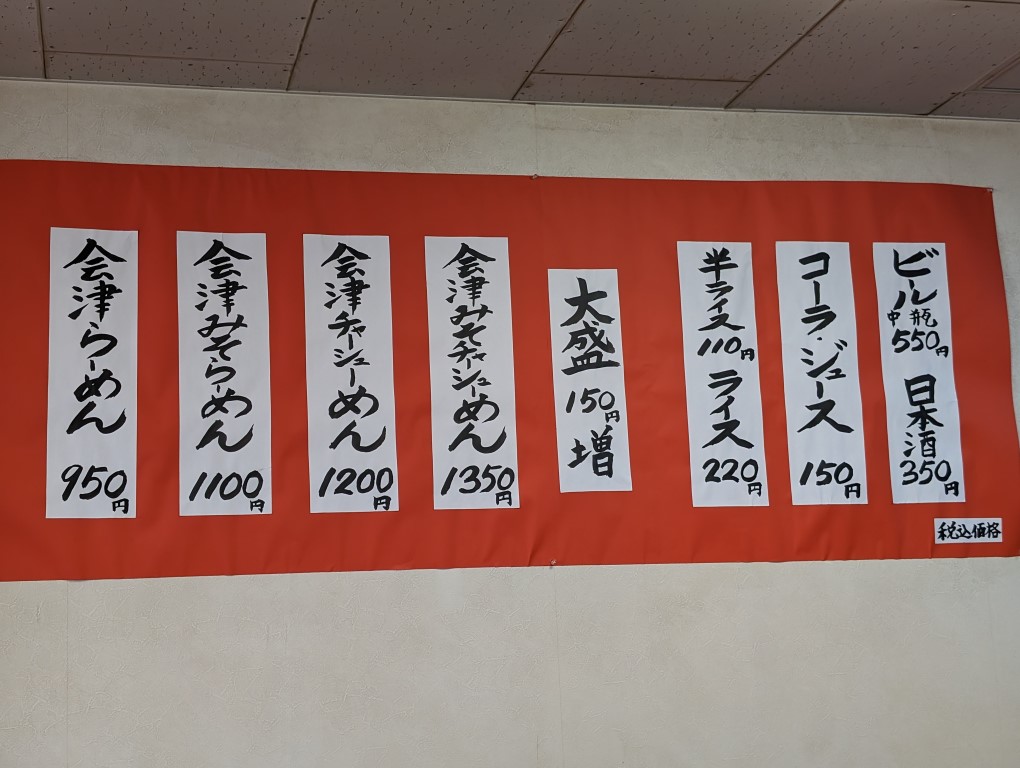 会津らーめん
950円
会津みそらーめん
1100円
会津チャーシューめん
1200円
会津みそチャーシューめん
1350円
大盛
150円
増
半ライス
110円
ライス
220円
コーラ・ジュース
150円
ビール
中瓶
550円
日本酒
350円
税込価格